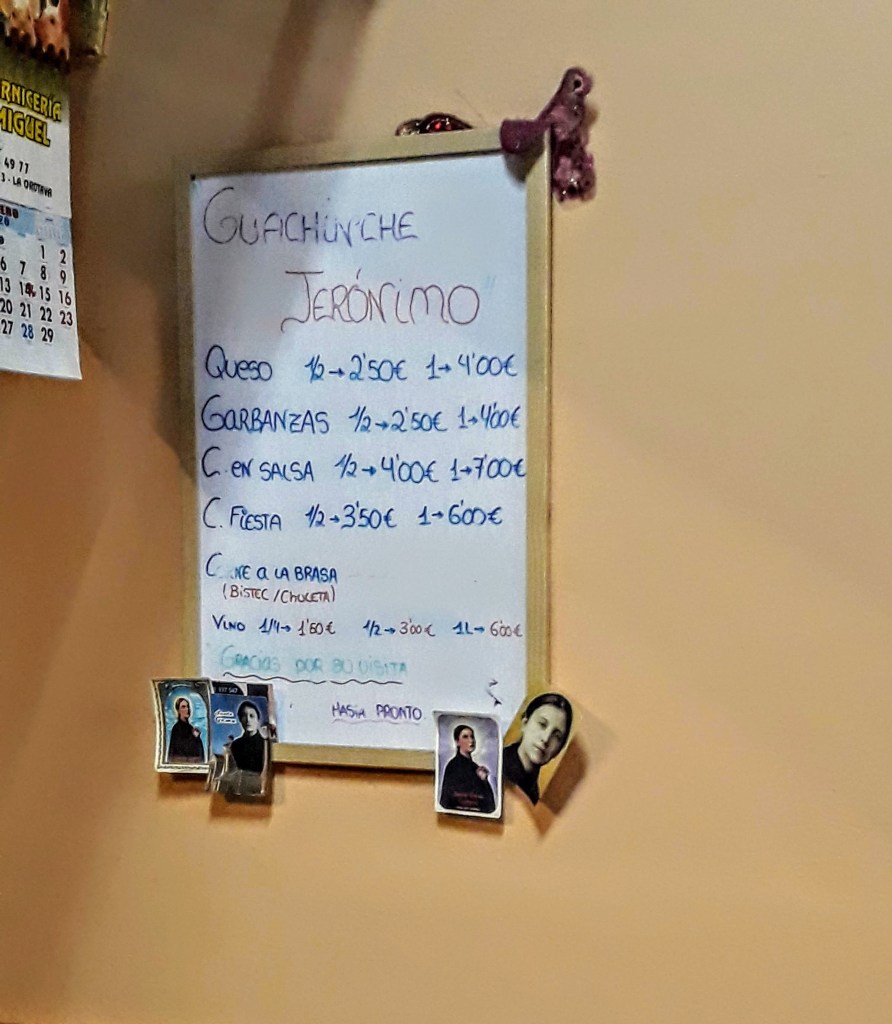 RNICERÍA
MIGUEL
49 77
3 - LA OROTAVA
1 2
6 7 8 9
13 14 15 16
20 21 22 23
27 28 29
GUACHINCHE
JERÓNIMO
QUESO 1/2→2'50€ 1→4'00€
GARBANZAS 1/2→2'50€ 1→4'00€
C. EN SALSA 1/2→4'00€ 1→7'00€
C. FIESTA 1/2→3'50€ 1→6'00€
C NE A LA BRASA
(BISTEC/CHULETA)
VINO 1/4→1'50€ 1/2→3'00€ 1L→6'00€
GRACIAS POR SU VISITA
HASTA PRONTO